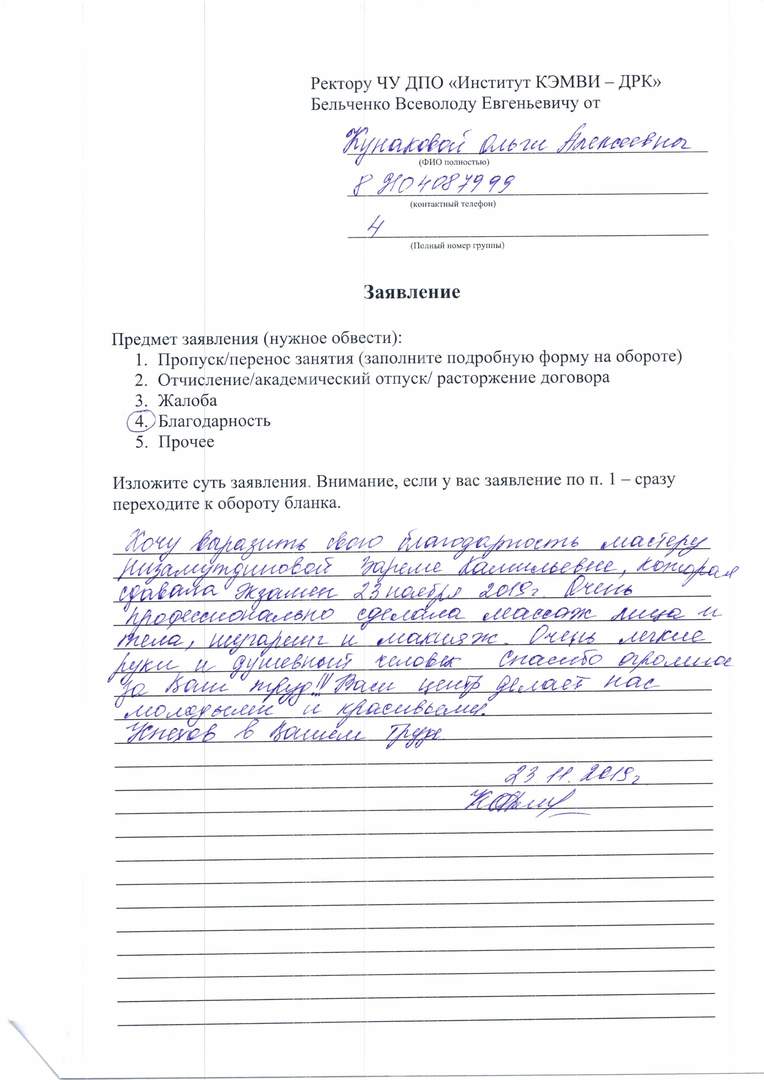 Ректору ЧУ ДПО «Институт КЭМВИ – ДРК»
Бельченко Всеволоду Евгеньевичу от
Кунаковой Ольги Алексеевны
(ФИО полностью)
8 9104087999
(контактный телефон)
4
(Полный номер группы)
Заявление
Предмет заявления (нужное обвести):
1. Пропуск/перенос занятия (заполните подробную форму на обороте)
2. Отчисление/академический отпуск/ расторжение договора
3. Жалоба
4. Благодарность
5. Прочее
Изложите суть заявления. Внимание, если у вас заявление по п. 1 – сразу
переходите к обороту бланка.
Хочу выразить свою благодарность мастеру
Низамутдиновой Зареме Камильевне, которая
сдавала экзамен 23 ноября 2019г. Очень
профессионально сделала массаж лица и
тела, шугаринг и макияж. Очень легкие
руки и душевный человек Спасибо огромное
за Ваш труд!!! Ваш центр делает нас
молодыми и красивыми.
Успехов в Вашем труде
23.11.2019г